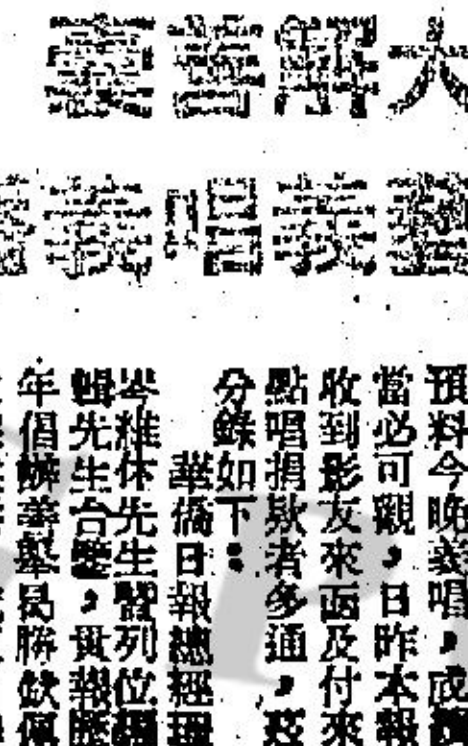 義唱義
預料今晚義唱，成績
當必可觀，日昨本報
收到影友來函及付來
點唱捐欵者多通，茲
分錄如下：
華僑日報總經理
岑維休先生暨列位編
輯先生台鑒，貴報歷
年倡辦善舉曷勝欽佩